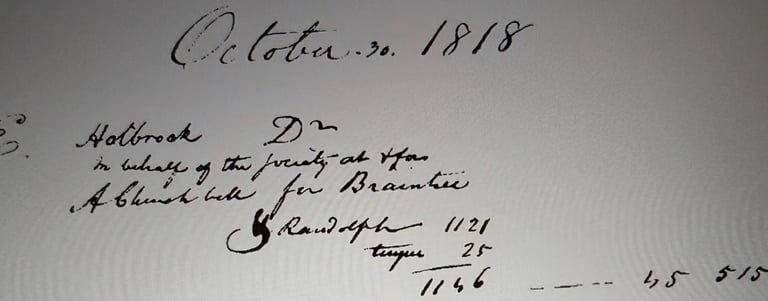 October 30. 1818
Holbrook Dr
in behalf of the Society at & for
A Church bell for Braintree
& Randolph 1121
tongue 25
1146 ----- 45 515